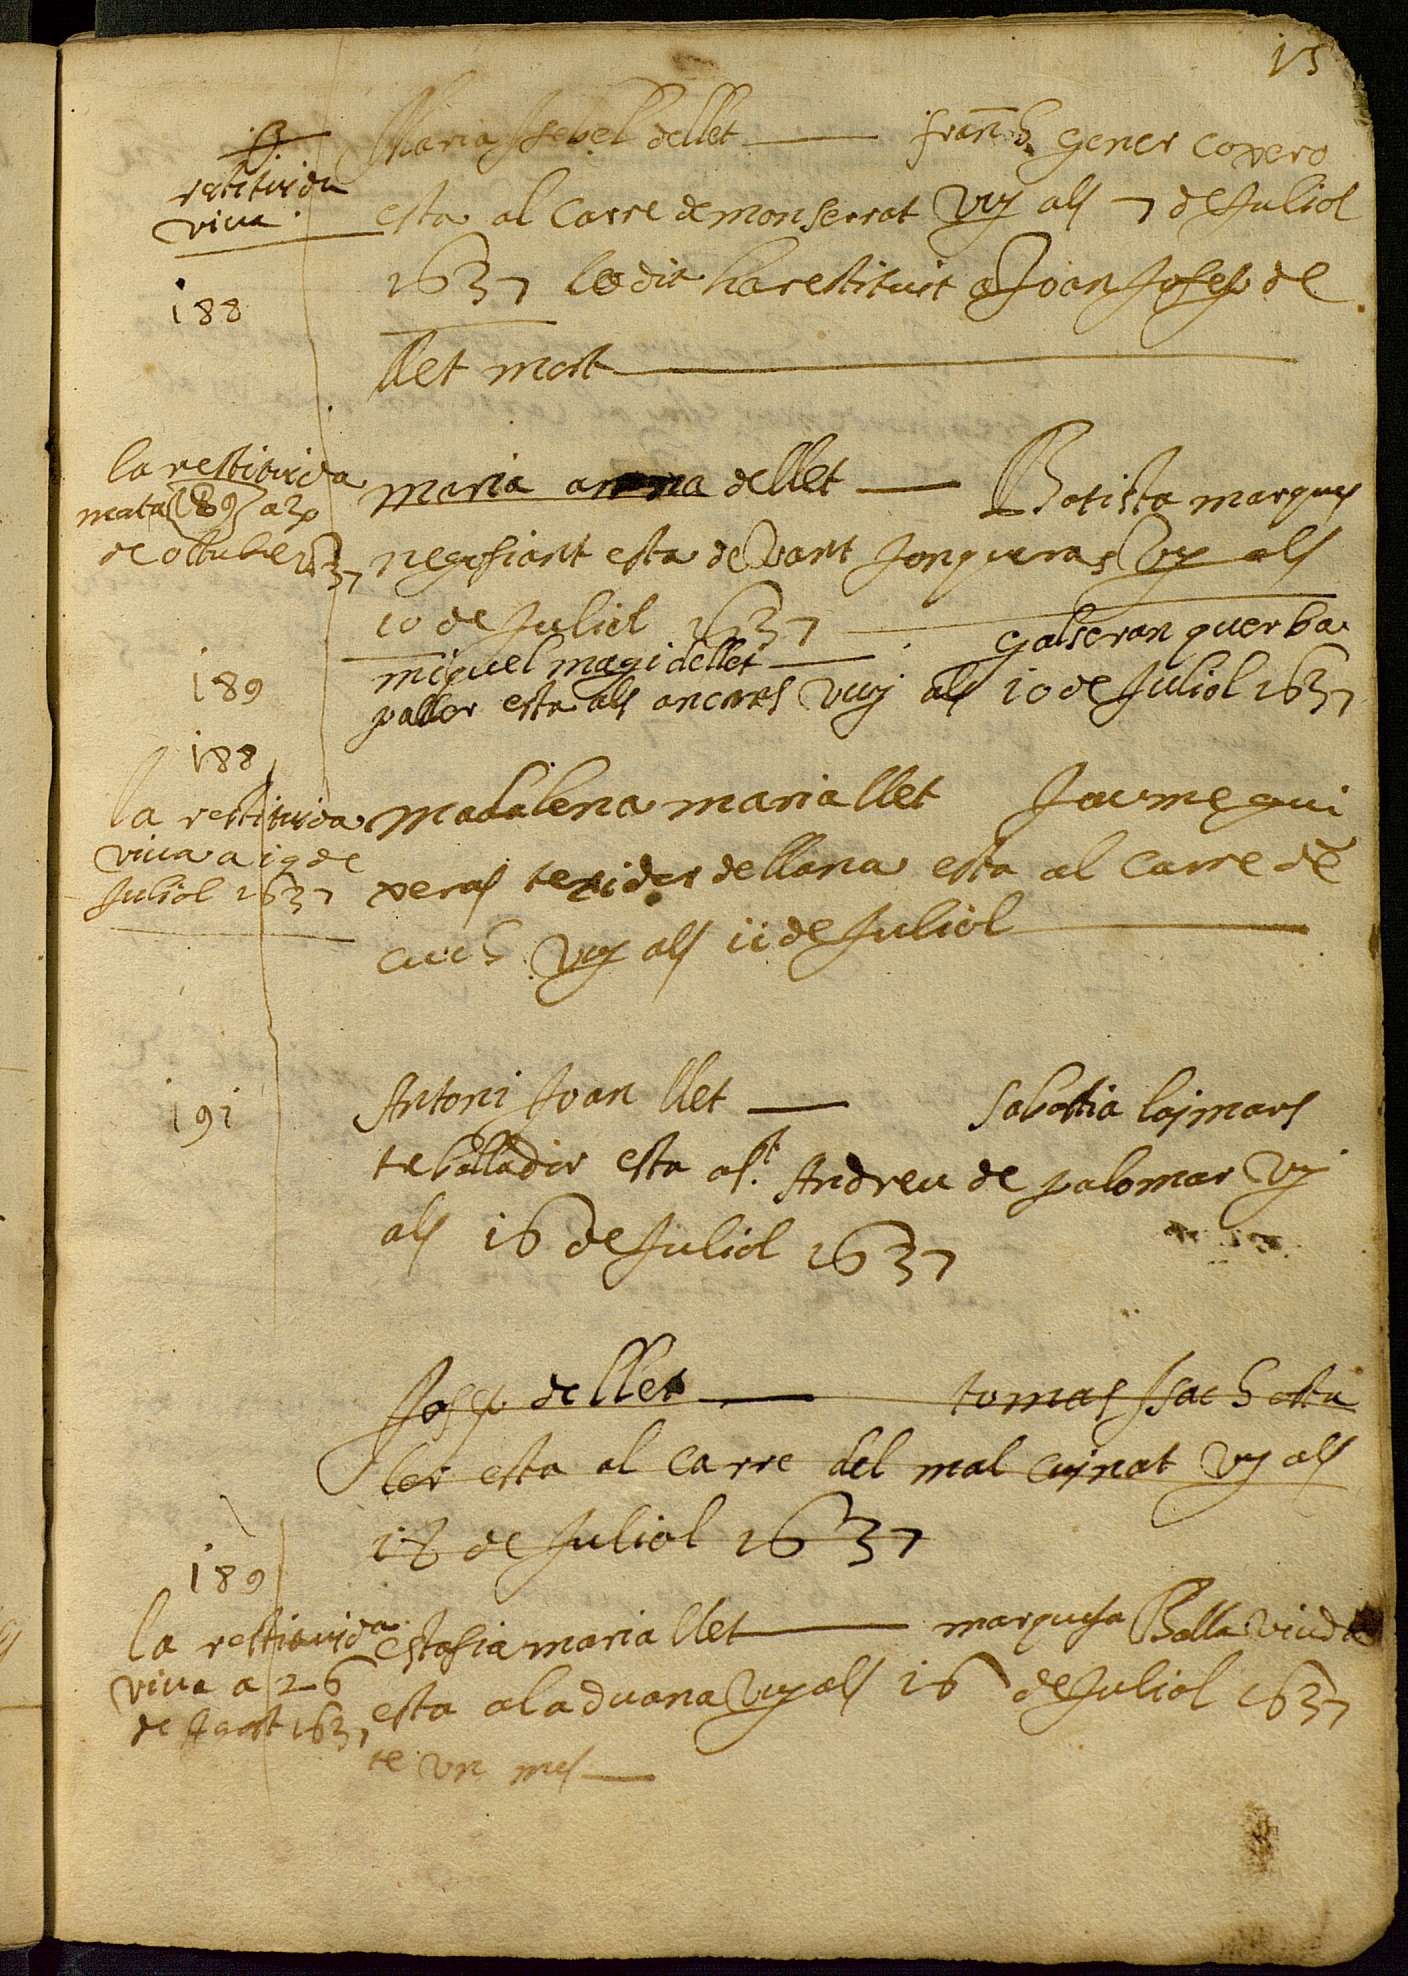 15
Maria Isebel dellet — fran.ch gener coxero
restituida
viva
esta al carre de monserrat vuy als 7 de Juliol
1637 lo dit ha restituit a Joan Josep de
188
llet mort
la restituida
morta 189 a 20
de octubre 1637
maria anna dellet — Batista marques
negosiant esta devant Jonqueras vuy als
10 de Juliol 1637
miquel magi dellet — galseran querba
189
paller esta als ancares vuy als 10 de Juliol 1637
188
la restituida
viva a 19 de
Juliol 1637
madalena maria llet Jaume gui
xeras texidor dellana esta al carre den
cuch vuy als 11 de Juliol
191
Antoni Joan llet — sabastia
teballador esta a st. Andreu de palomar vuy
als 16 de Juliol 1637
Josep dellet — tomas Isac h osta
ler esta al carre del mal cuynat vuy als
18 de Juliol 1637
189
la restituida
viva a 26
de Agost 1637
estasia maria llet — marquesa Balla viuda
esta a la duana vuy als 16 de Juliol 1637
te un mes —